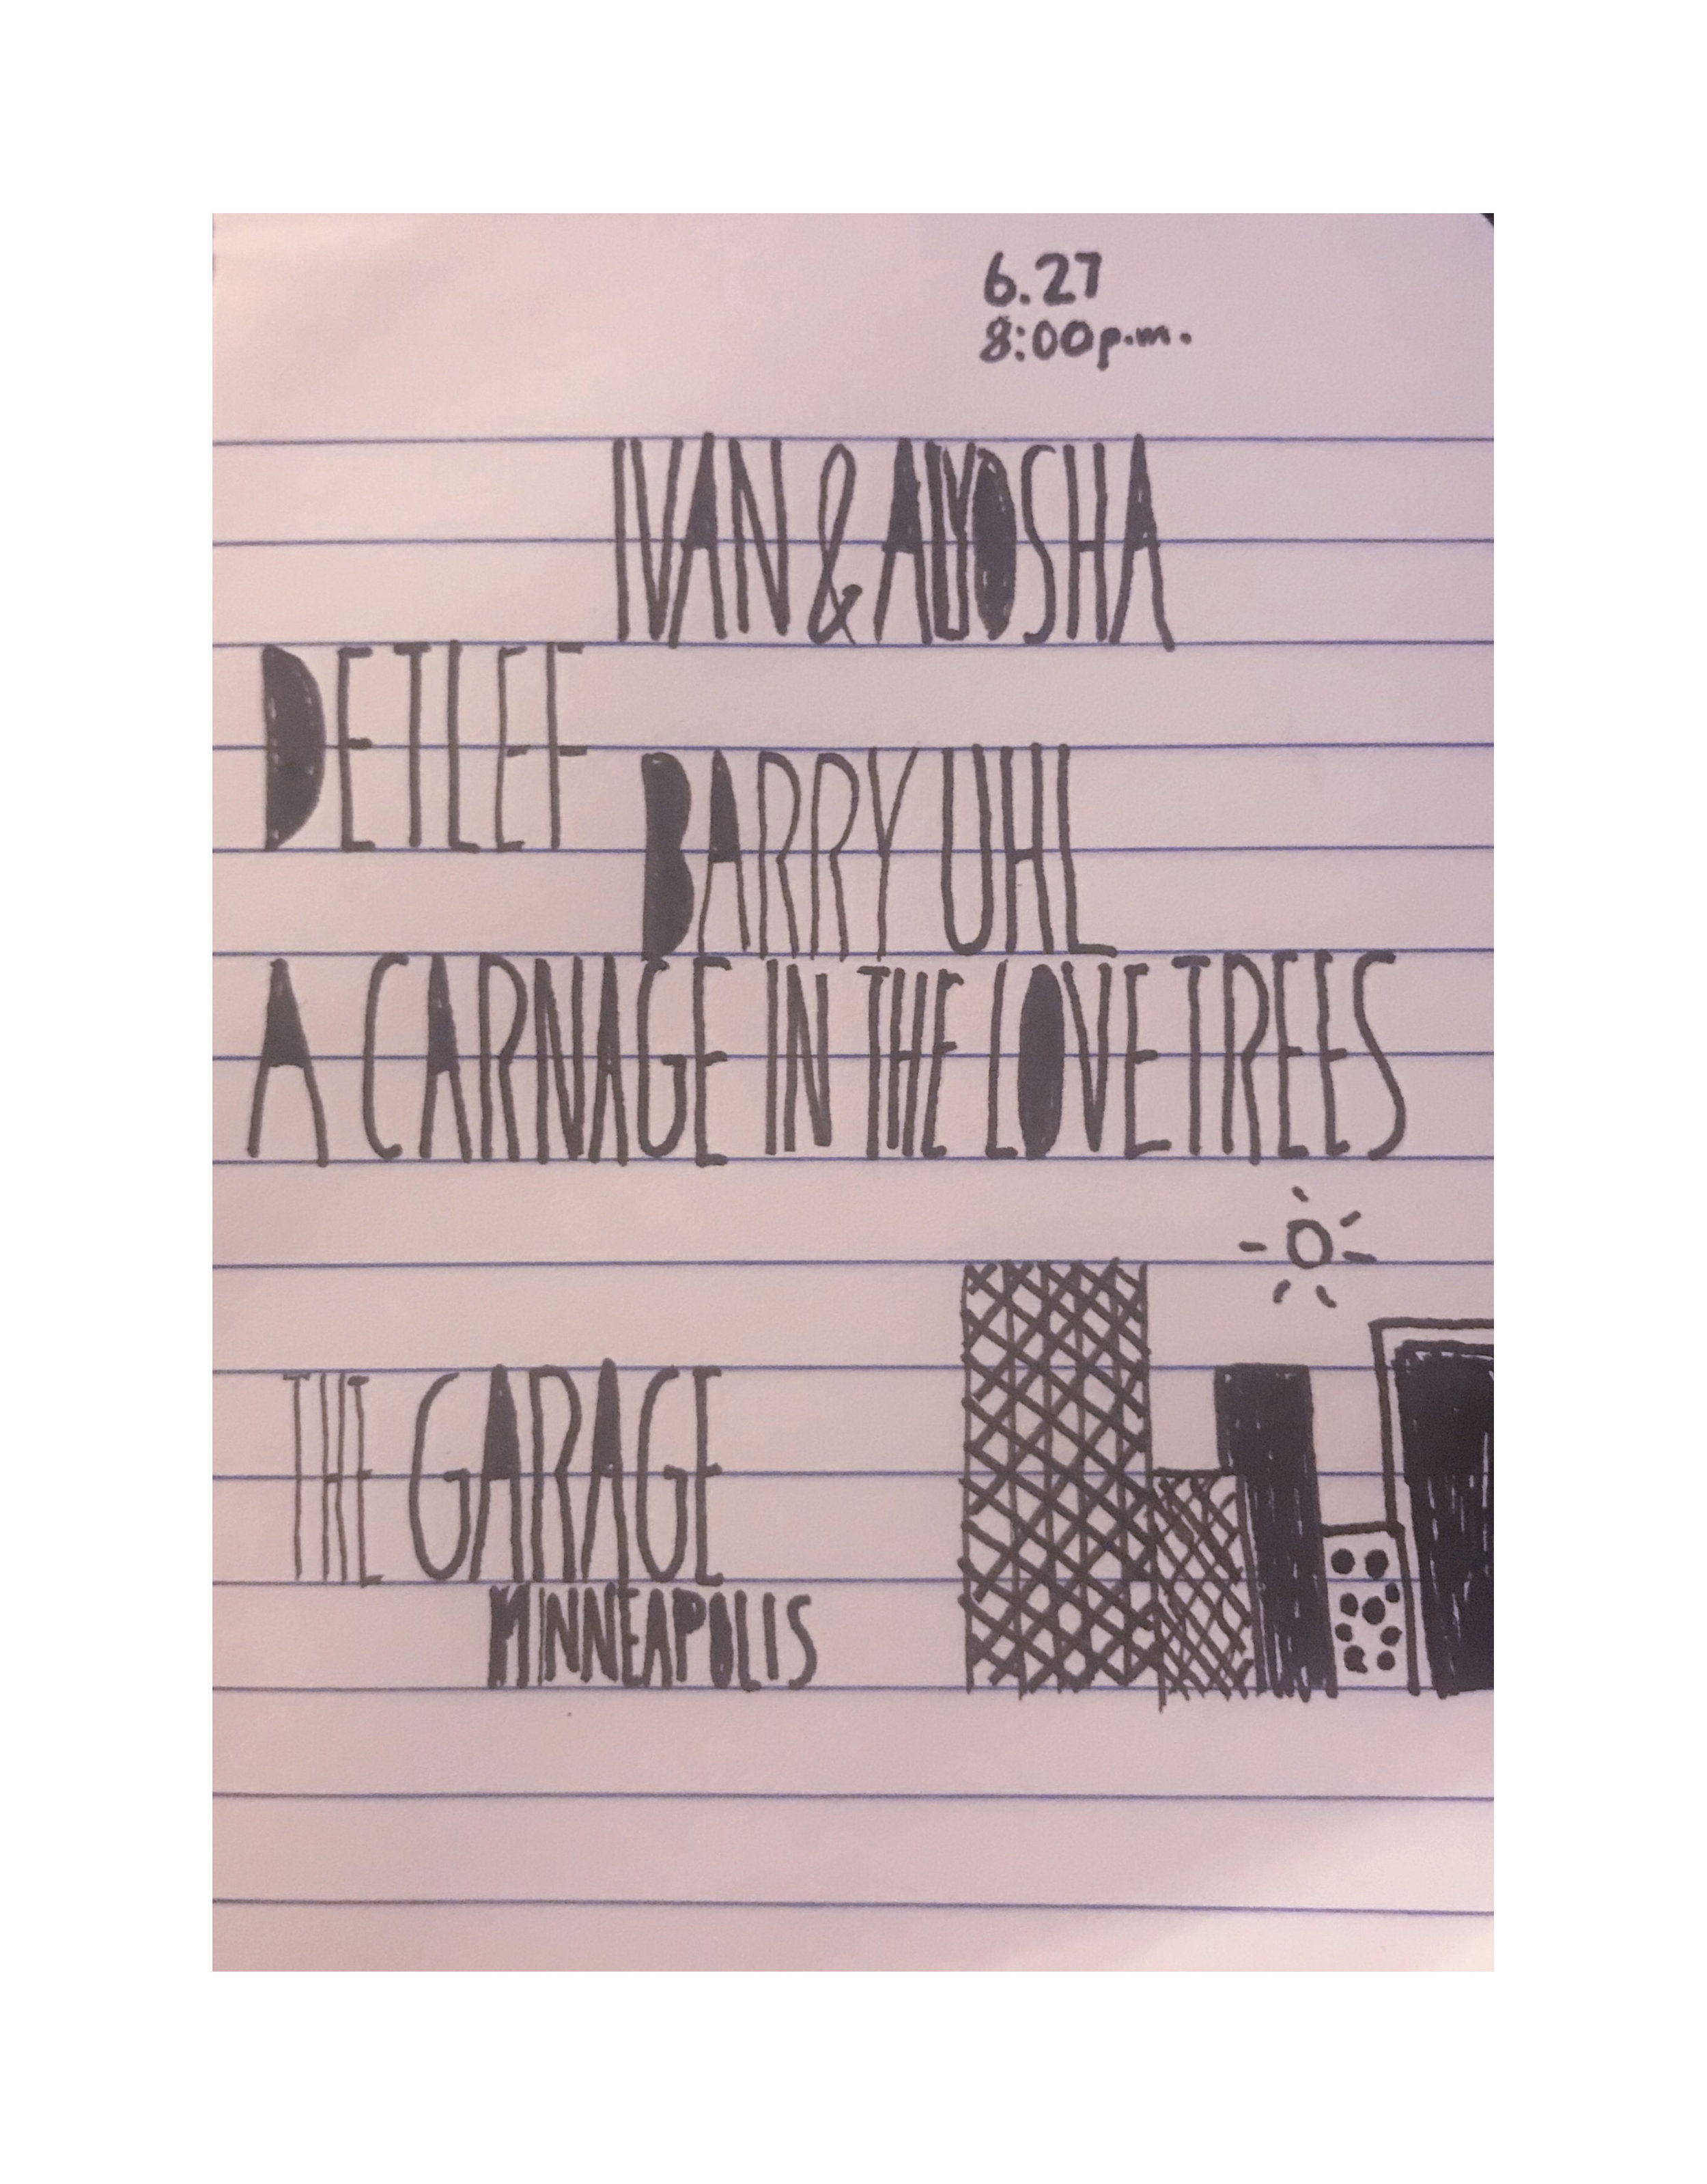 6.27
8:00p.m.
IVAN & ALYOSHA
DETLEF
BARRY UHL
A CARNAGE IN THE LOVE TREES
THE GARAGE
MINNEAPOLIS